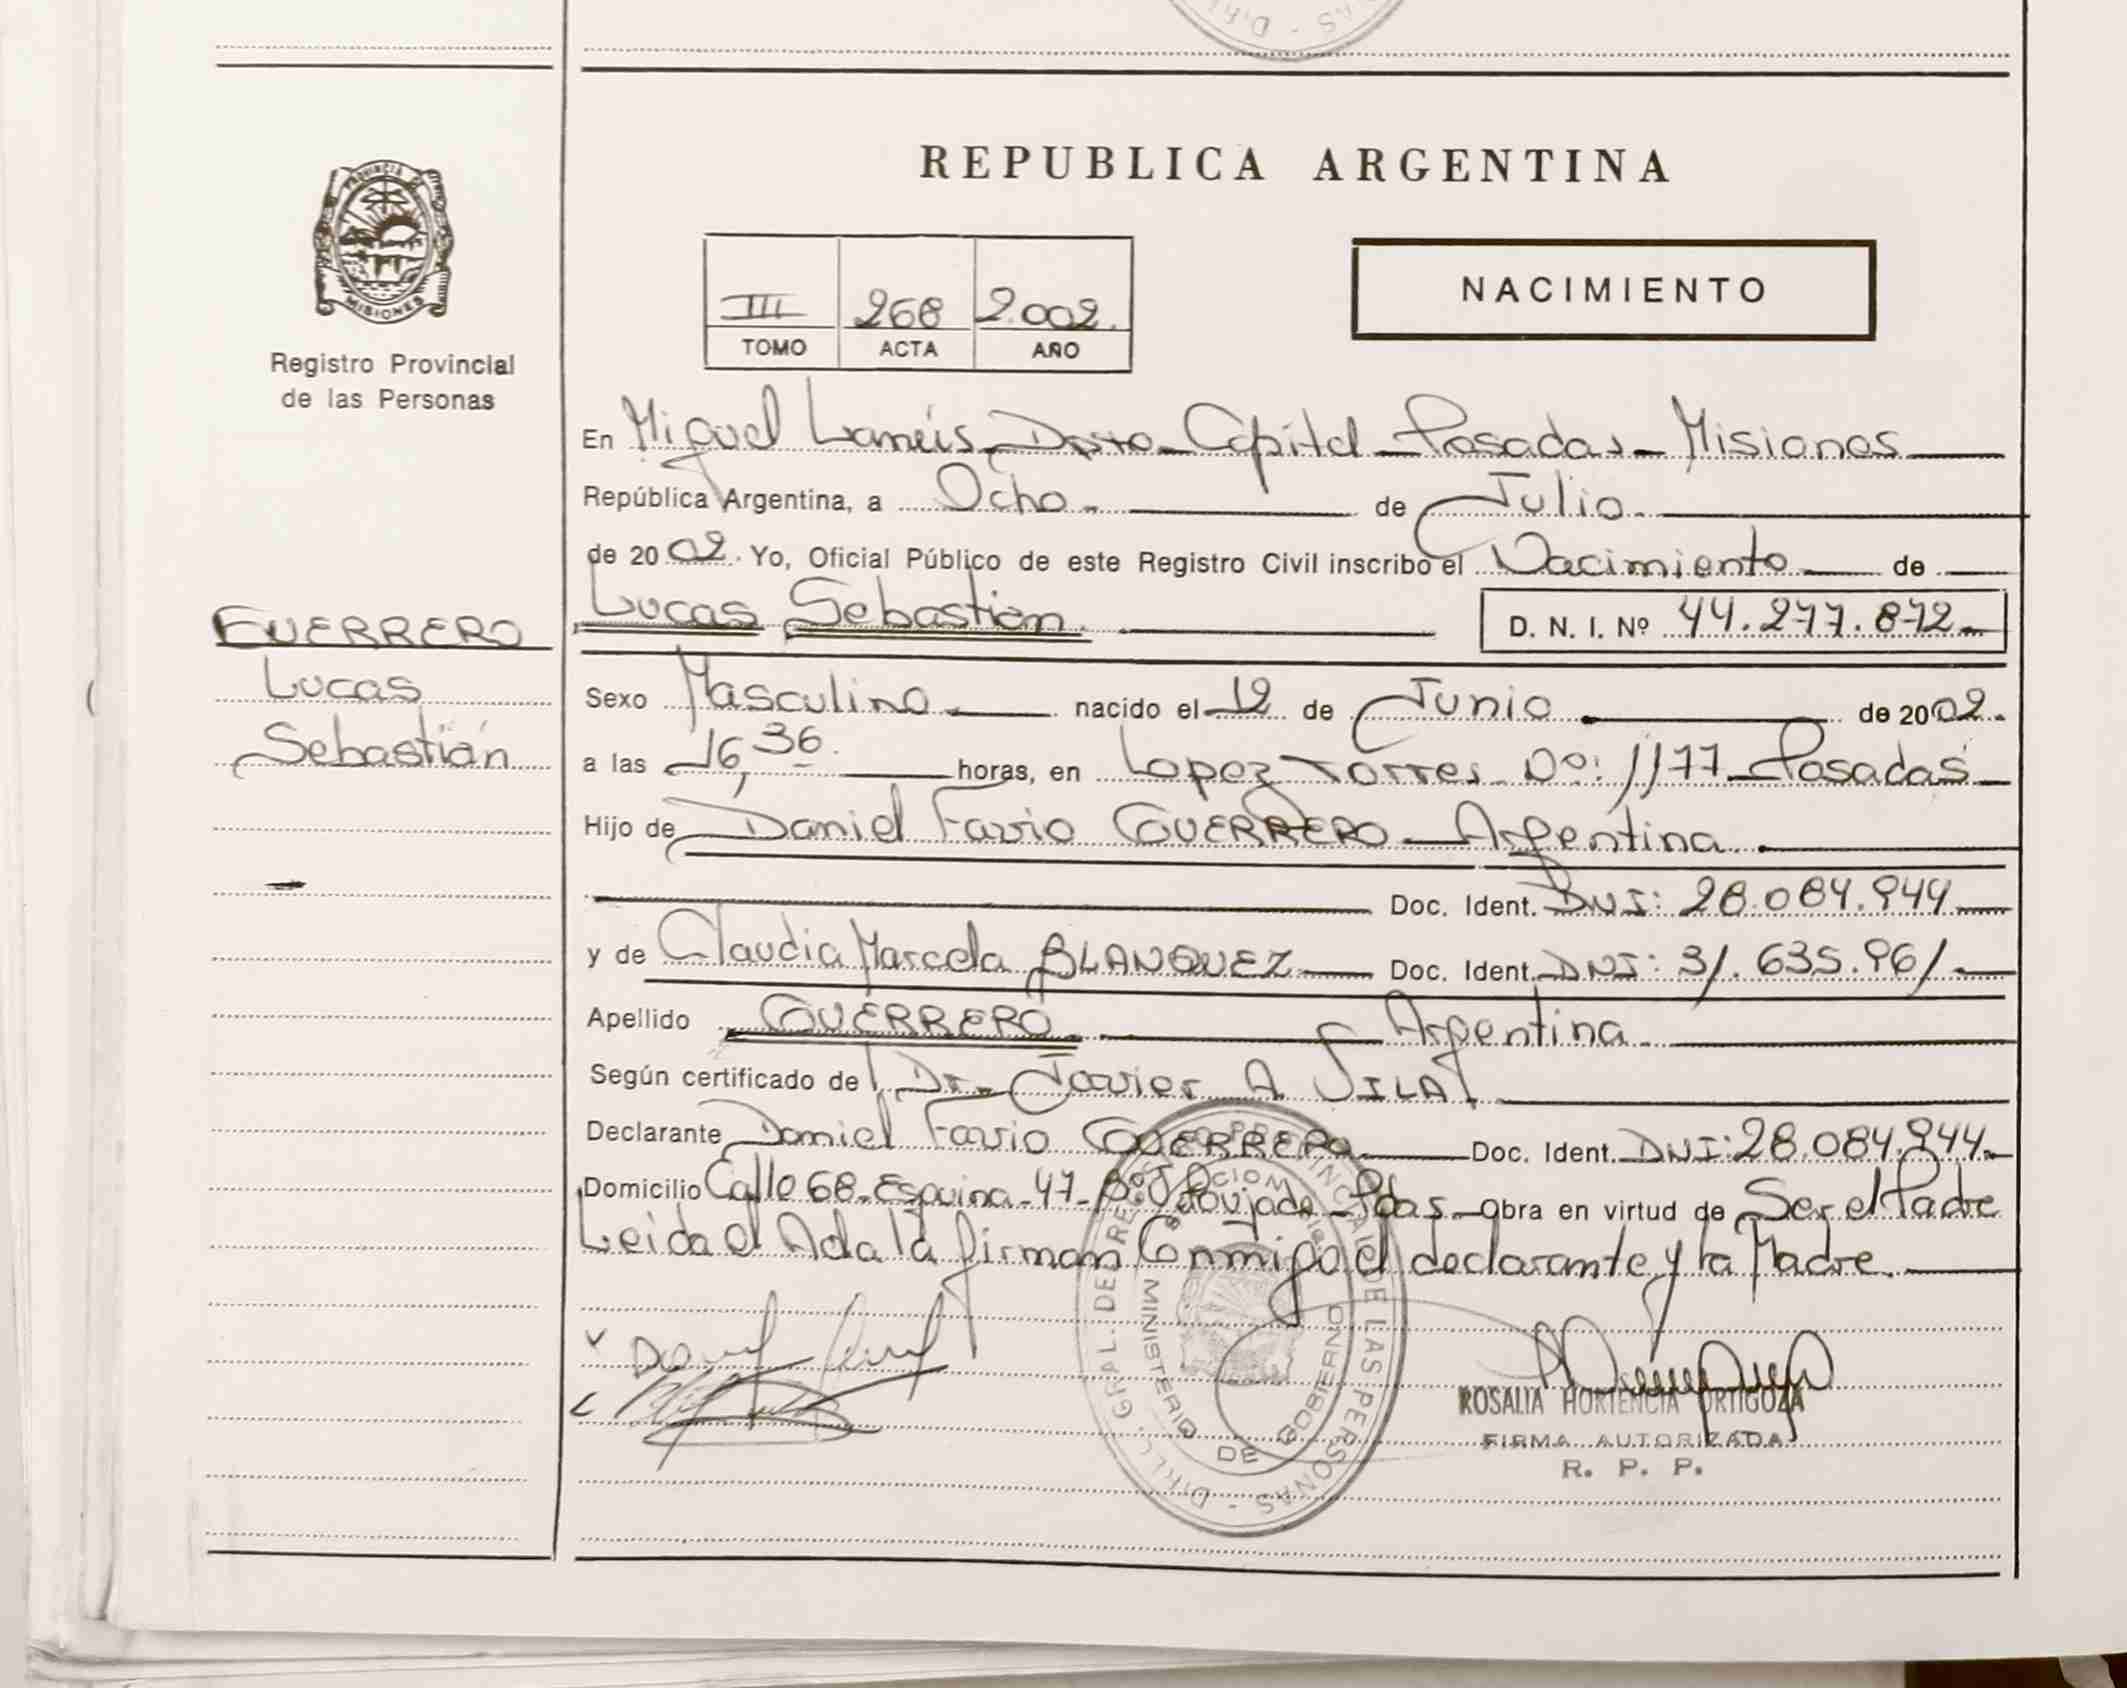 REPUBLICA ARGENTINA
PROVINCIA DE
MISIONES
Registro Provincial
de las Personas
III 268 2.002.
TOMO ACTA AÑO
NACIMIENTO
En Miguel Lanús Dpto Capital Posadas Misiones
República Argentina, a Ocho de Julio
de 2002. Yo, Oficial Público de este Registro Civil inscribo el Nacimiento de
GUERRERO
Lucas
Sebastián
Lucas Sebastián D. N. I. Nº 44.277.872
Sexo Masculino nacido el 12 de Junio de 2002.
a las 16,36 horas, en Lopez Torres Nº: 1177 Posadas
Hijo de Daniel Favio GUERRERO Argentina
Doc. Ident. DNI: 28.084.944
y de Claudia Marcela BLANQUEZ Doc. Ident. DNI: 31.635.961
Apellido GUERRERO Argentina
Según certificado de Dr. Javier A SILA
Declarante Daniel Favio GUERRERO Doc. Ident. DNI: 28.084.944
Domicilio Calle 68 Esquina 47 Bº Pdas Obra en virtud de Ser el Padre
Leida el Acta la firman Conmigo el declarante y la Madre.
DIR. GRAL. DEL REG. PROVINCIAL DE LAS PERSONAS
MINISTERIO DE GOBIERNO
ROSALIA HORTENCIA ORTIGOZA
FIRMA AUTORIZADA
R. P. P.